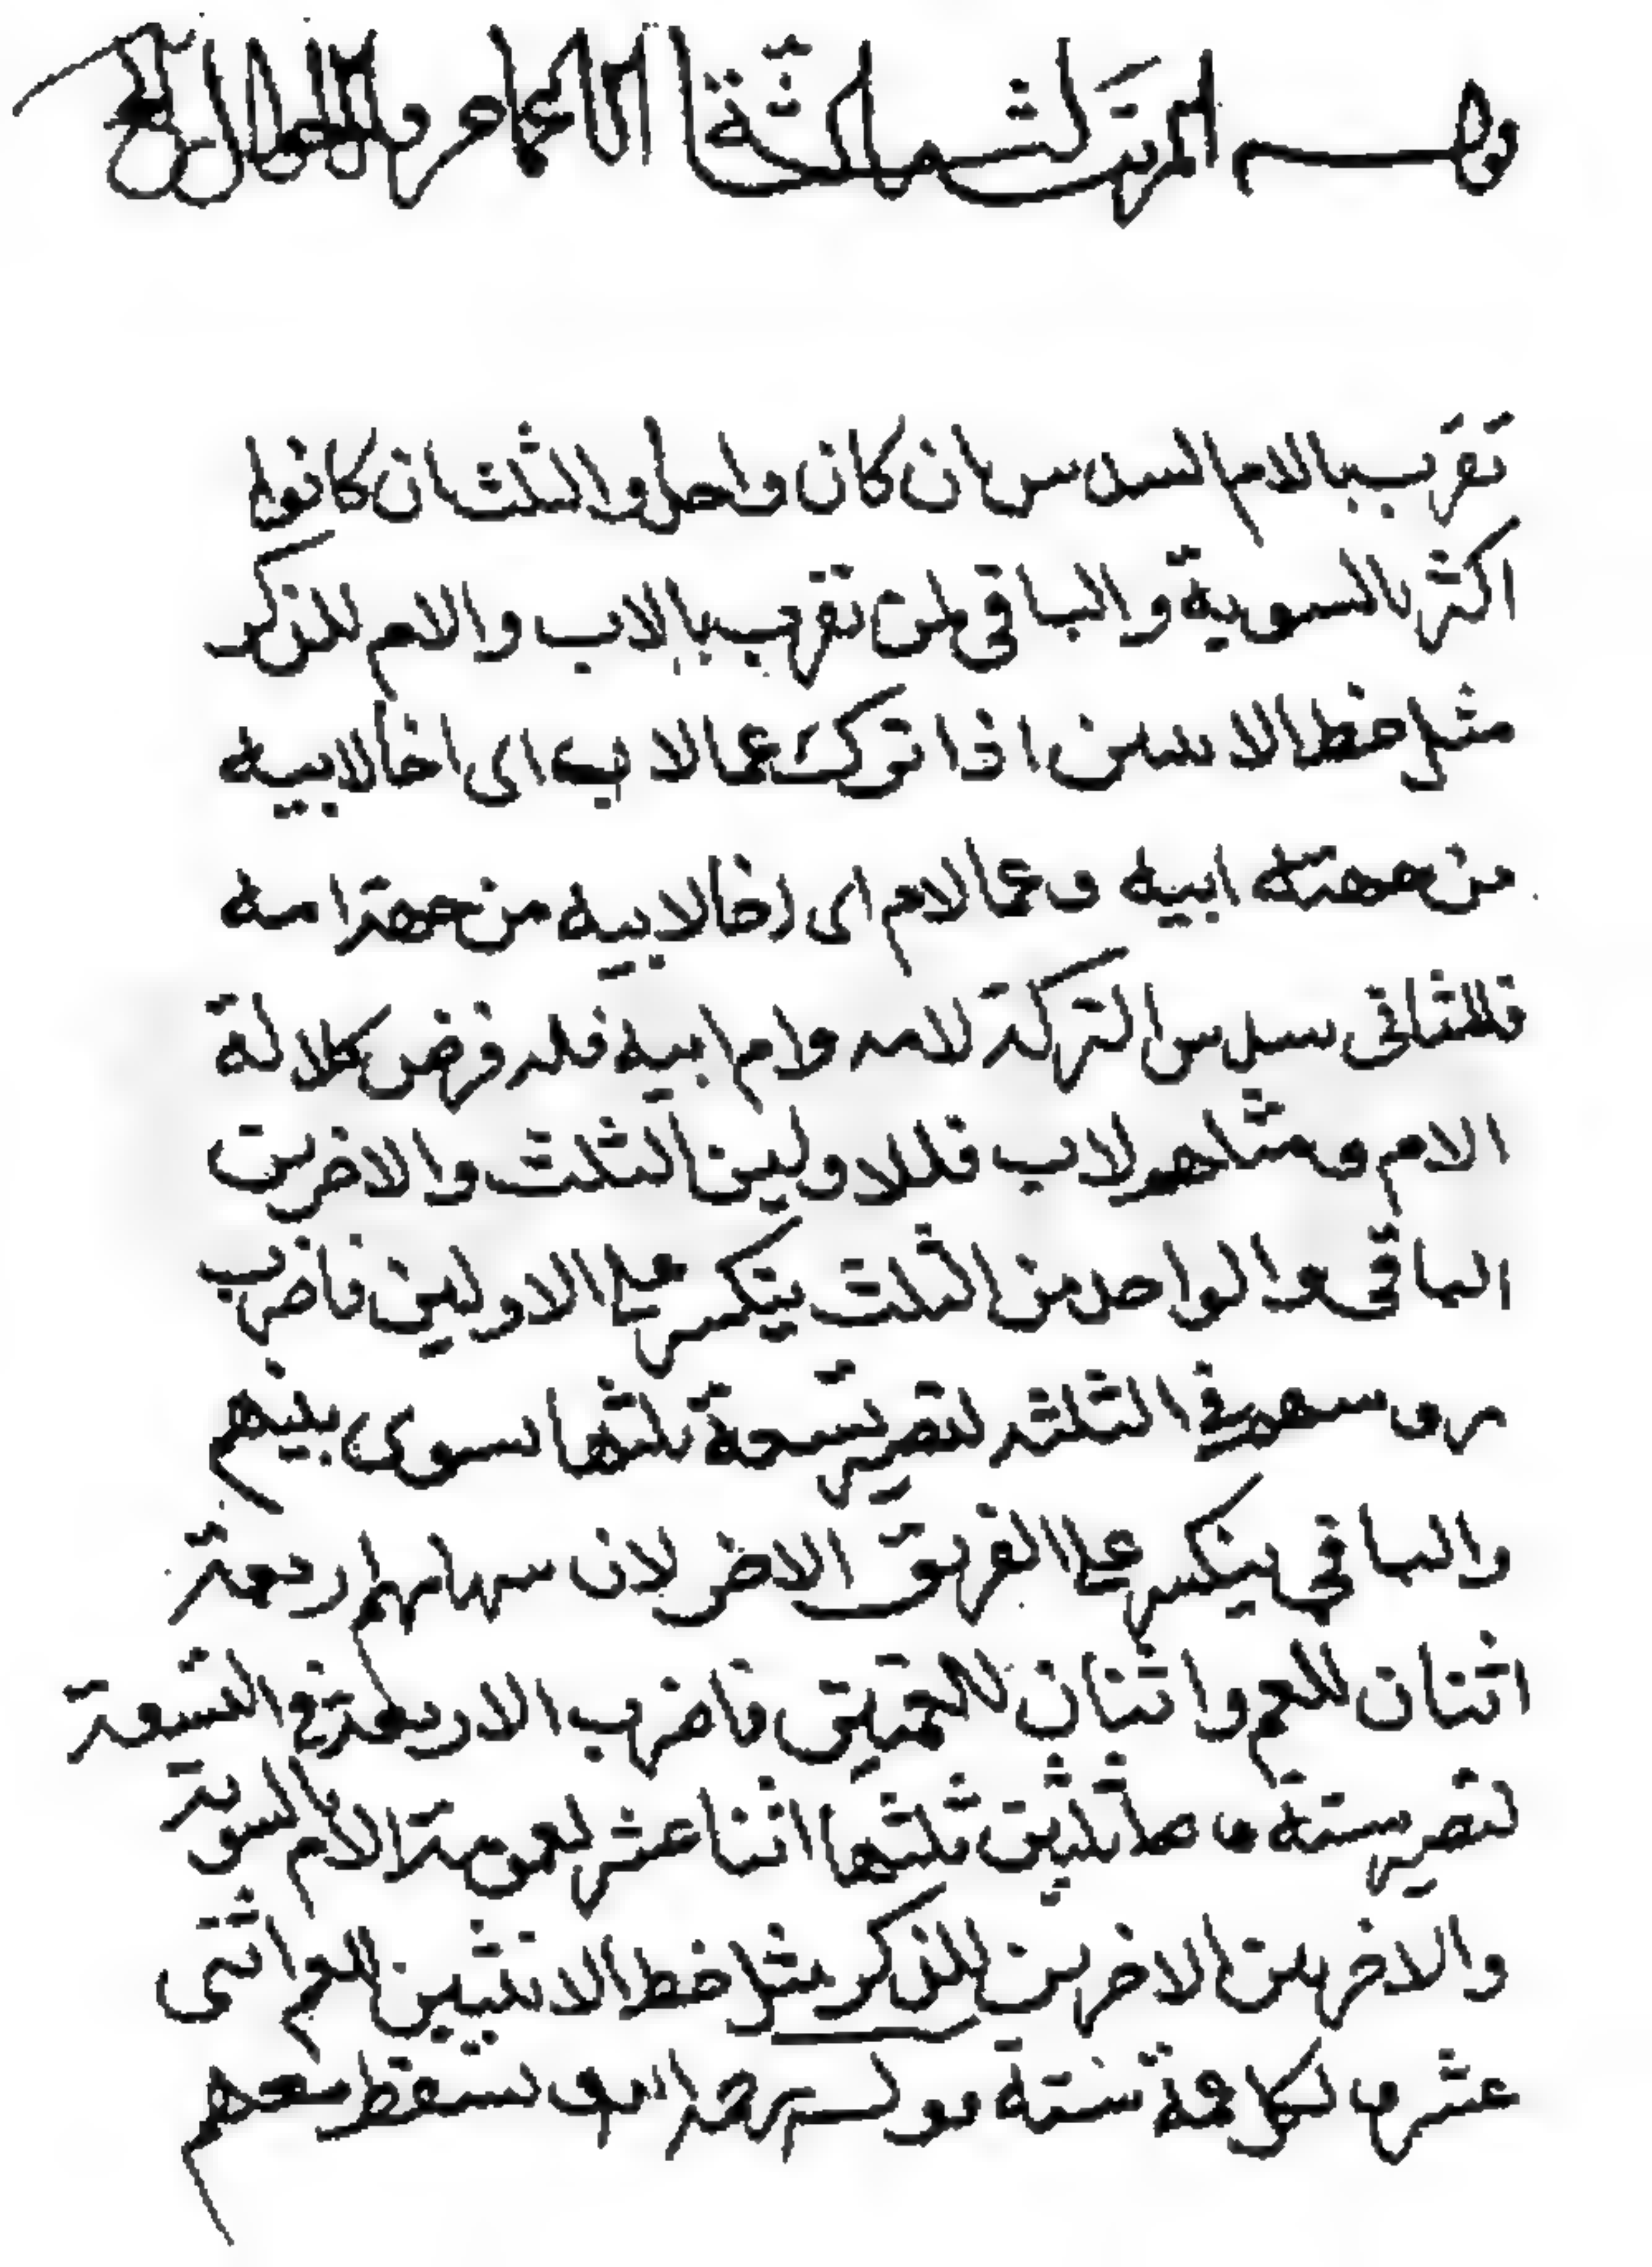 المرتبة الثالثة الاعمام والاخوال
تقرب بالام السدس ان كان واحدا والثلث ان كانوا
اكثر بالسوية والباقى لمن تقرب بالاب والام للذكر
مثل حظ الانثيين اذا ترك عما لاب اى اخا لابيه
من جهة ابيه وعما لام اى اخا لابيه من جهة امه
فللثانى سدس التركة لانه وام ابيه فله فرض كلالة
الام ومثلهم لاب فللاولين الثلث والاخرين
الباقى والواحد من الثلث ينكسر على الاولين فاضرب
رؤسهم فى الثلثة لتصير تسعة ثلثها سوى بينهم
والباقى ينكسر على الفريق الاخر لان سهامهم اربعة
اثنان للعم واثنان للعمتين فاضرب الاربعة فى التسعة
لتصير ستة وثلثين ثلثها اثنا عشر لعمومة الام بالسوية
والاخرين الاخرين للذكر مثل حظ الانثيين للعم اثنى
عشر ولكل عمة ستة تسقط معهم